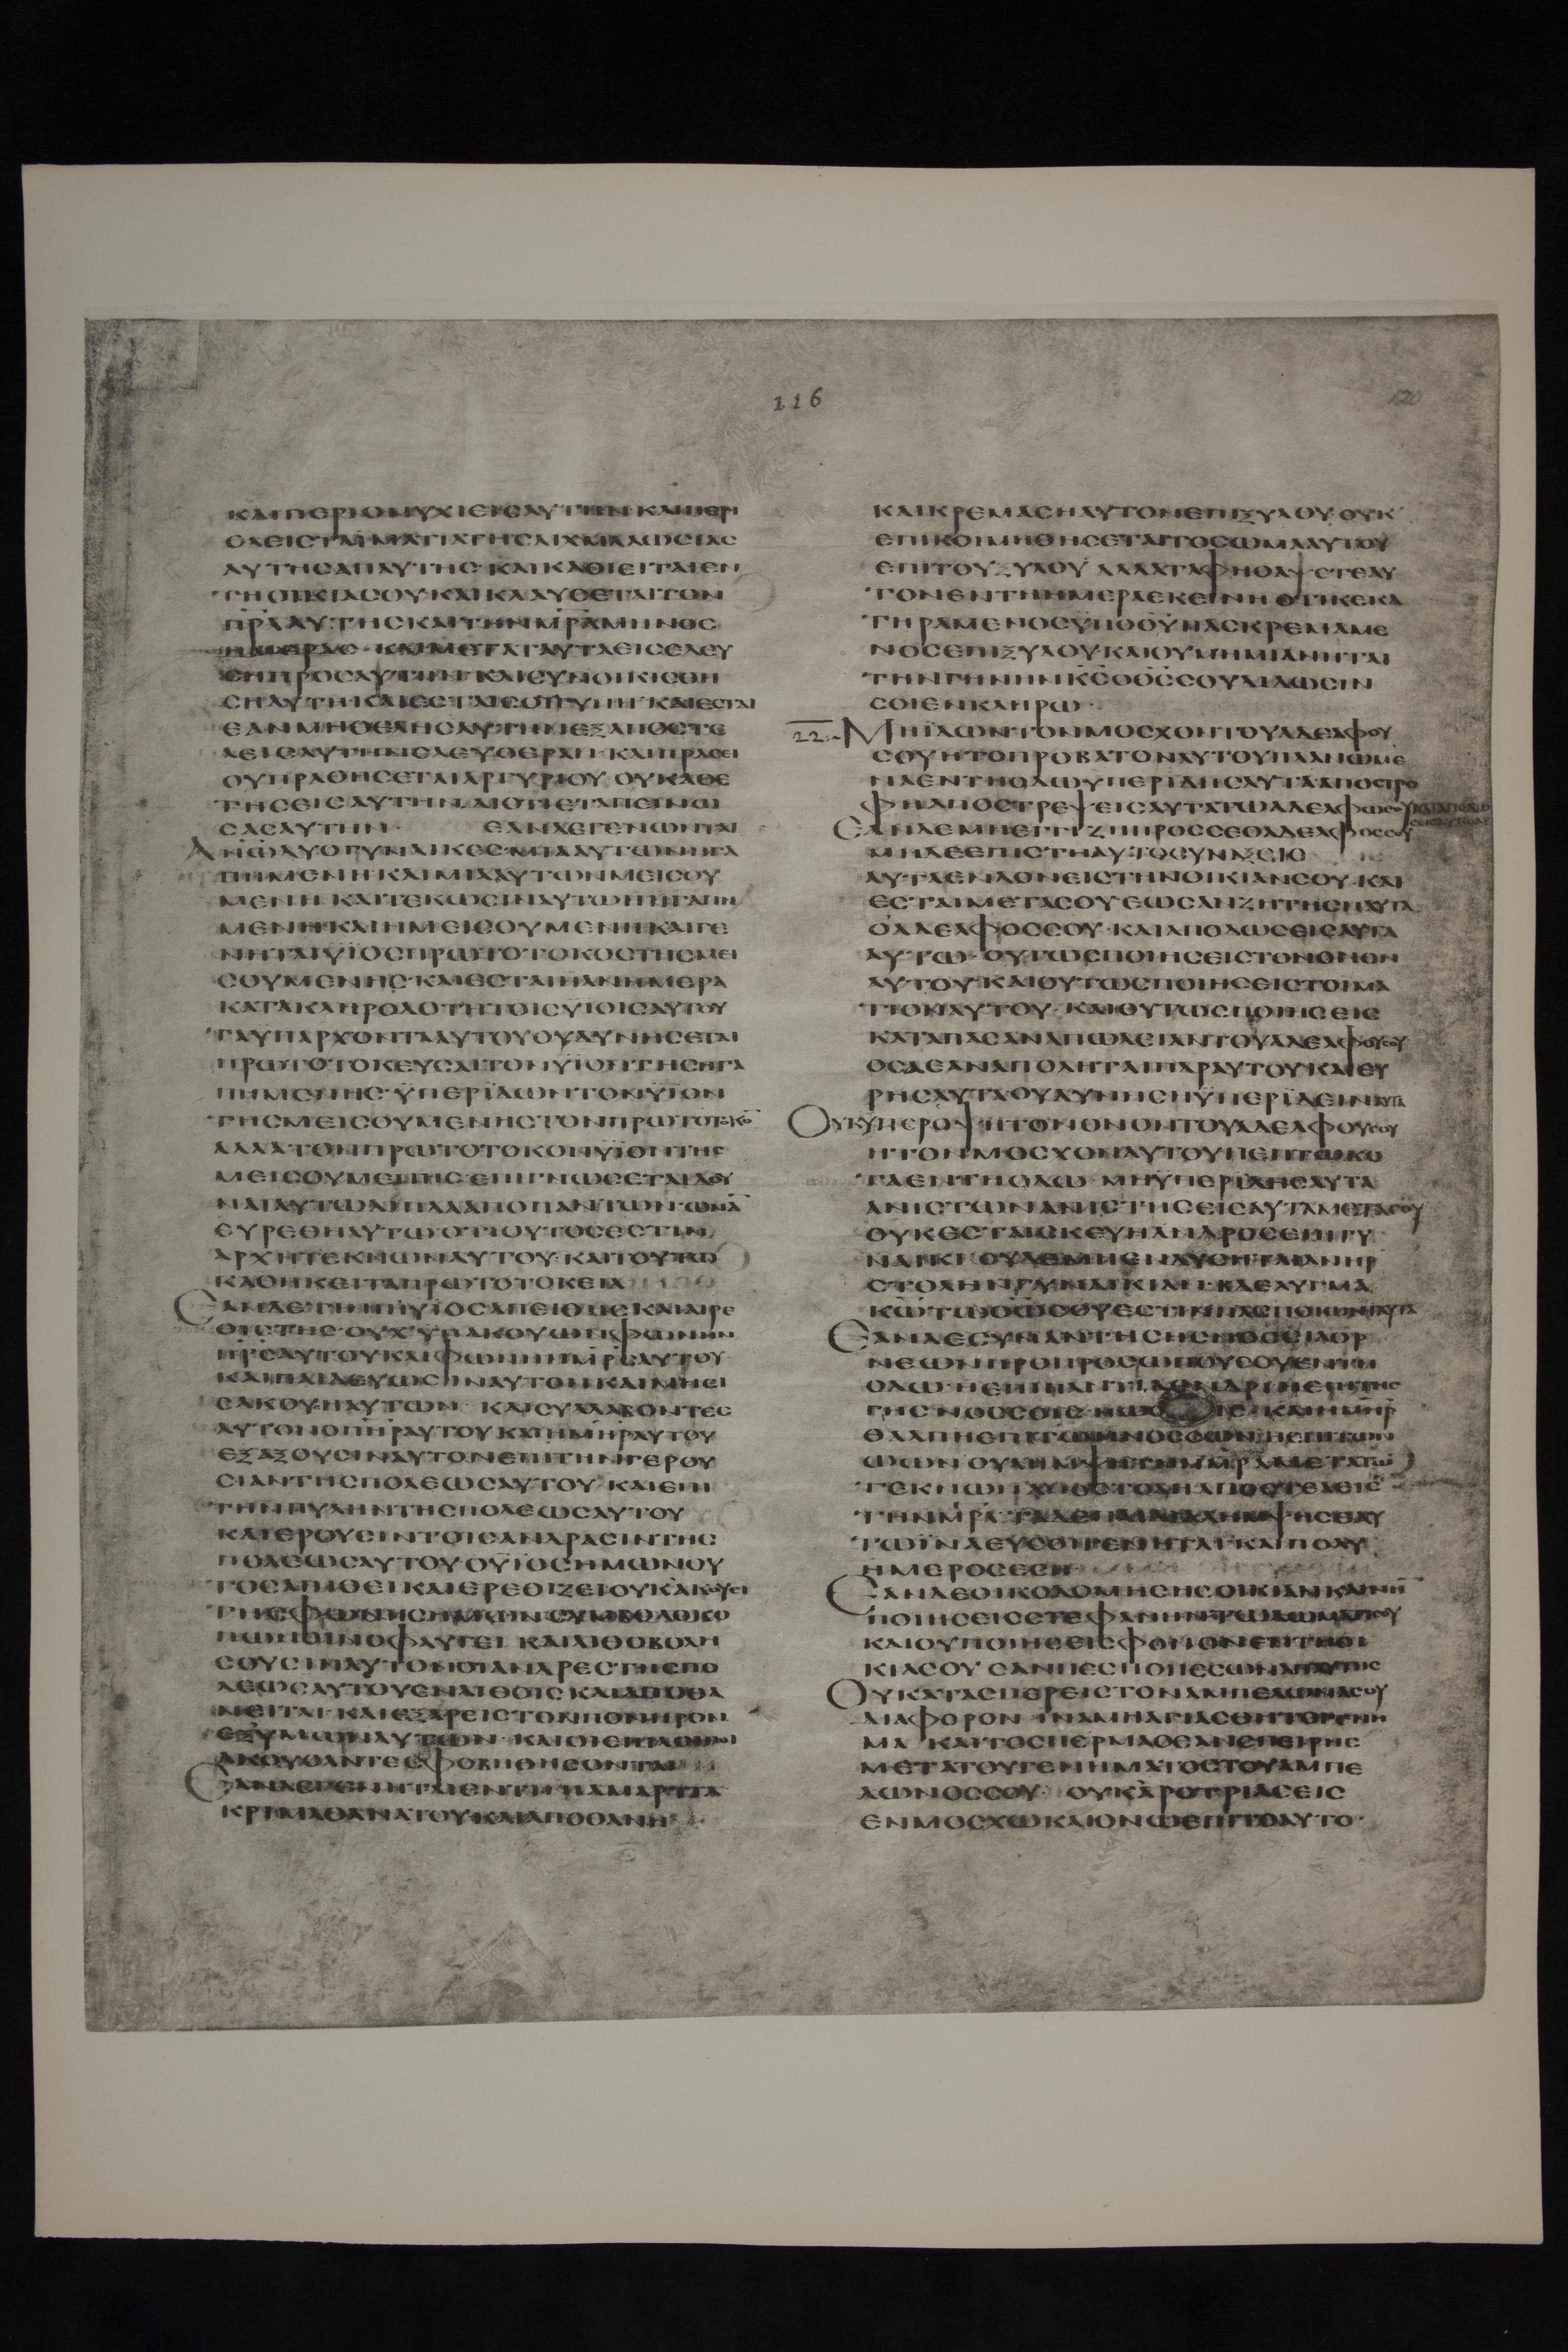 116
120
ΚΑΙΠΕΡΙΟΝΥΧΙΕΙΣΑΥΤΗΝ ΚΑΙΠΕΡΙ
ΟΛΕΙΣΤΑΙΜΑΤΙΑΤΗΣΑΙΧΜΑΛΩΣΙΑΣ
ΑΥΤΗΣΑΠΑΥΤΗΣ· ΚΑΙΚΑΘΙΕΙΤΑΙΕΝ
ΤΗΟΙΚΙΑΣΟΥΚΑΙΚΛΑΥΣΕΤΑΙΤΟΝ
ΠΡΑΑΥΤΗΣΚΑΙΤΗΝΜΡΑΜΗΝΟΣ
ΗΜΕΡΑΣ· ΚΑΙΜΕΤΑΤΑΥΤΑΕΙΣΕΛΕΥ
ΣΗΠΡΟΣΑΥΤΗΝ ΚΑΙΣΥΝΟΙΚΙΣΘΗ
ΣΗΑΥΤΗΚΑΙΕΣΤΑΙΣΟΙΓΥΝΗ ΚΑΙΕΣΤΑΙ
ΕΑΝΜΗΘΕΛΗΣΑΥΤΗΝΕΞΑΠΟΣΤΕ
ΛΕΙΣΑΥΤΗΝΕΛΕΥΘΕΡΑΝ· ΚΑΙΠΡΑΣΕΙ
ΟΥΠΡΑΘΗΣΕΤΑΙΑΡΓΥΡΙΟΥ ΟΥΚΑΘΕ
ΤΗΣΕΙΣΑΥΤΗΝΔΙΟΤΙΕΤΑΠΕΙΝΩ
ΣΑΣΑΥΤΗΝ· ΕΑΝΔΕΓΕΝΩΝΤΑΙ
ΑΝΩΔΥΟΓΥΝΑΙΚΕΣ·ΜΙΑΑΥΤΩΝΗΓΑ
ΠΗΜΕΝΗ ΚΑΙΜΙΑΑΥΤΩΝΜΕΙΣΟΥ
ΜΕΝΗ· ΚΑΙΤΕΚΩΣΙΝΑΥΤΩΗΗΓΑΠΗ
ΜΕΝΗΚΑΙΗΜΕΙΣΟΥΜΕΝΗ ΚΑΙΓΕ
ΝΗΤΑΙΥΙΟΣΠΡΩΤΟΤΟΚΟΣΤΗΣΜΕΙ
ΣΟΥΜΕΝΗΣ· ΚΑΙΕΣΤΑΙΗΑΝΗΜΕΡΑ
ΚΑΤΑΚΛΗΡΟΔΟΤΗΤΟΙΣΥΙΟΙΣΑΥΤΟΥ
ΤΑΥΠΑΡΧΟΝΤΑΑΥΤΟΥΟΥΔΥΝΗΣΕΤΑΙ
ΠΡΩΤΟΤΟΚΕΥΣΑΙΤΟΝΥΙΟΝΤΗΣΗΓΑ
ΠΗΜΕΝΗΣ· ΥΠΕΡΙΔΩΝΤΟΝΥΙΟΝ
ΤΗΣΜΕΙΣΟΥΜΕΝΗΣΤΟΝΠΡΩΤΟΤΟΚΟ¯
ΑΛΛΑΤΟΝΠΡΩΤΟΤΟΚΟΝΥΙΟΝΤΗΣ
ΜΕΙΣΟΥΜΕΝΗΣ·ΕΠΙΓΝΩΣΕΤΑΙΔΟΥ
ΝΑΙΑΥΤΩΔΙΠΛΑΑΠΟΠΑΝΤΩΝ·ΩΝΑ¯
ΕΥΡΕΘΗΑΥΤΩΟΤΙΟΥΤΟΣΕΣΤΙΝ
ΑΡΧΗΤΕΚΝΩΝΑΥΤΟΥ· ΚΑΙΤΟΥΤΩ
ΚΑΘΗΚΕΙΤΑΠΡΩΤΟΤΟΚΕΙΑ
ΕΑΝΔΕΤΙΝΙΗΥΙΟΣΑΠΕΙΘΗΣ ΚΑΙΕΡΕ
ΘΙΣΤΗΣ· ΟΥΧΥΠΑΚΟΥΩΝΦΩΝΗΝ
ΠΡΣΑΥΤΟΥΚΑΙΦΩΝΗΝΜΡΣΑΥΤΟΥ
ΚΑΙΠΑΙΔΕΥΩΣΙΝΑΥΤΟΝ ΚΑΙΜΗΕΙ
ΣΑΚΟΥΗΑΥΤΩΝ· ΚΑΙΣΥΛΛΑΒΟΝΤΕΣ
ΑΥΤΟΝΟΠΗΡΑΥΤΟΥ ΚΑΙΗΜΗΡΑΥΤΟΥ
ΕΞΑΞΟΥΣΙΝΑΥΤΟΝΕΠΙΤΗΝΓΕΡΟΥ
ΣΙΑΝΤΗΣΠΟΛΕΩΣΑΥΤΟΥ· ΚΑΙΕΠΙ
ΤΗΝΠΥΛΗΝΤΗΣΠΟΛΕΩΣΑΥΤΟΥ
ΚΑΙΕΡΟΥΣΙΝΤΟΙΣΑΝΔΡΑΣΙΝΤΗΣ
ΠΟΛΕΩΣΑΥΤΟΥΟΥΙΟΣΗΜΩΝΟΥ
ΤΟΣΑΠΙΘΕΙΚΑΙΕΡΕΘΙΖΕΙΟΥΚΑΚΟΥΕΙ
ΤΗΣΦΩΝΗΣΗΜΩΝΣΥΜΒΟΛΟΚΟ
ΠΩΝΟΙΝΟΦΛΥΓΕΙ· ΚΑΙΛΙΘΟΒΟΛΗ
ΣΟΥΣΙΝΑΥΤΟΝΟΙΑΝΔΡΕΣΤΗΣΠΟ
ΛΕΩΣΑΥΤΟΥΕΝΛΙΘΟΙΣ ΚΑΙΑΠΟΘΑ
ΝΕΙΤΑΙ· ΚΑΙΕΞΑΡΕΙΣΤΟΝΠΟΝΗΡΟΝ
ΕΞΥΜΩΝΑΥΤΩΝ· ΚΑΙΟΙΕΠΙΛΟΙΠΟΙ
ΑΚΟΥΣΑΝΤΕΣΦΟΒΗΘΗΣΟΝΤΑΙ
ΕΑΝΔΕΓΕΝΗΤΑΙΕΝΤΙΝΙΑΜΑΡΤΙΑ
ΚΡΙΜΑΘΑΝΑΤΟΥ·ΚΑΙΑΠΟΘΑΝΗ
ΚΑΙΚΡΕΜΑΣΗΑΥΤΟΝΕΠΙΞΥΛΟΥ·ΟΥΚ
ΕΠΙΚΟΙΜΗΘΗΣΕΤΑΙΤΟΣΩΜΑΑΥΤΟΥ
ΕΠΙΤΟΥΞΥΛΟΥ ΑΛΛΑΤΑΦΗΘΑΨΕΤΕΑΥ
ΤΟΝΕΝΤΗΗΜΕΡΑΕΚΕΙΝΗ ΟΤΙΚΕΚΑ
ΤΗΡΑΜΕΝΟΣΥΠΟΘΥΠΑΣΚΡΕΜΑΜΕ
ΝΟΣΕΠΙΞΥΛΟΥ·ΚΑΙΟΥΜΗΜΙΑΝΗΤΑΙ
ΤΗΝΓΗΝΗΝΚΣΟΘΣΣΟΥΔΙΔΩΣΙΝ
ΣΟΙΕΝΚΛΗΡΩ·
22 ΜΗΙΔΩΝΤΟΝΜΟΣΧΟΝΤΟΥΑΔΕΛΦΟΥ
ΣΟΥΗΤΟΠΡΟΒΑΤΟΝΑΥΤΟΥΠΛΑΝΩΜΕ
ΝΑΕΝΤΗΟΔΩΥΠΕΡΙΔΗΣΑΥΤΑΑΠΟΣΤΡΟ
ΦΗΑΠΟΣΤΡΕΨΕΙΣΑΥΤΑΤΩΑΔΕΛΦΩΣΟΥ
ΕΑΝΔΕΜΗΕΓΓΙΖΗΠΡΟΣΣΕΟΑΔΕΛΦΟΣΣΟΥ
ΜΗΔΕΕΠΙΣΤΗΑΥΤΟΣΥΝΞΕΙΣ
ΑΥΤΑΕΝΔΟΝΕΙΣΤΗΝΟΙΚΙΑΝΣΟΥ·ΚΑΙ
ΕΣΤΑΙΜΕΤΑΣΟΥ ΕΩΣΑΝΖΗΤΗΣΗΑΥΤΑ
ΟΑΔΕΛΦΟΣΣΟΥ· ΚΑΙΑΠΟΔΩΣΕΙΣΑΥΤΑ
ΑΥΤΩ· ΟΥΤΩΣΠΟΙΗΣΕΙΣΤΟΝΟΝΟΝ
ΑΥΤΟΥ ΚΑΙΟΥΤΩΣΠΟΙΗΣΕΙΣΤΟΙΜΑ
ΤΙΟΝΑΥΤΟΥ· ΚΑΙΟΥΤΩΣΠΟΙΗΣΕΙΣ
ΚΑΤΑΠΑΣΑΝΑΠΩΛΕΙΑΝΤΟΥΑΔΕΛΦΟΥΣΟΥ
ΟΣΑΕΑΝΑΠΟΛΗΤΑΙΠΑΡΑΥΤΟΥΚΑΙΕΥ
ΡΗΣΑΥΤΑΟΥΔΥΝΗΣΗΥΠΕΡΙΔΕΙΝΑΥΤΑ
ΟΥΚΥΠΕΡΟΨΗΤΟΝΟΝΟΝΤΟΥΑΔΕΛΦΟΥΣΟΥ
ΗΤΟΝΜΟΣΧΟΝΑΥΤΟΥΠΕΠΤΩΚΟ
ΤΑΕΝΤΗΟΔΩ· ΜΗΥΠΕΡΙΔΗΣΑΥΤΑ
ΑΝΙΣΤΩΝΑΝΙΣΤΗΣΕΙΣΑΥΤΑΜΕΤΑΣΟΥ
ΟΥΚΕΣΤΑΙΣΚΕΥΗΑΝΔΡΟΣΕΠΙΓΥ
ΝΑΙΚΙ ΟΥΔΕΜΗΕΝΔΥΣΗΤΑΙΑΝΗΡ
ΣΤΟΛΗΝΓΥΝΑΙΚΙΑΝ· ΒΔΕΛΥΓΜΑ
ΚΩΤΩΘΩΣΟΥΕΣΤΙΝΠΑΣΠΟΙΩΝΤΑΥΤΑ
ΕΑΝΔΕΣΥΝΑΝΤΗΣΗΣΝΟΣΣΙΑΟΡ
ΝΕΩΝΠΡΟΠΡΟΣΩΠΟΥΣΟΥΕΝΤΗ
ΟΔΩ· ΗΕΠΙΠΑΝΤΙΔΕΝΔΡΙΗΕΠΙΤΗΣ
ΓΗΣΝΟΣΣΟΙΣ· ΗΩΟΙΣ· ΚΑΙΗΜΗΡ
ΘΑΛΠΗΕΠΙΤΩΝΝΟΣΣΩΝΗΕΠΙΤΩΝ
ΩΩΝ ΟΥΛΗΜΨΗΤΗΝΜΡΑΜΕΤΑΤΩ¯
ΤΕΚΝΩΝ ΑΠΟΣΤΟΛΗΑΠΟΣΤΕΛΕΙΣ
ΤΗΝΜΡΑ· ΤΑΔΕΠΑΙΔΙΑΛΗΜΨΗΣΕΑΥ
ΤΩΙΝΑΕΥΣΟΙΓΕΝΗΤΑΙ· ΚΑΙΠΟΛΥ
ΗΜΕΡΟΣΕΣΗ
ΕΑΝΔΕΟΙΚΟΔΟΜΗΣΗΣΟΙΚΙΑΝΚΑΙΝΗ¯
ΠΟΙΗΣΕΙΣΣΤΕΦΑΝΗΝΤΩΔΩΜΑΤΙΣΟΥ
ΚΑΙΟΥΠΟΙΗΣΕΙΣΦΟΝΟΝΕΝΤΗΟΙ
ΚΙΑΣΟΥ ΕΑΝΠΕΣΗΟΠΕΣΩΝΑΠΑΥΤΗΣ
ΟΥΚΑΤΑΣΠΕΡΕΙΣΤΟΝΑΜΠΕΛΩΝΑΣΟΥ
ΔΙΑΦΟΡΟΝ ΙΝΑΜΗΑΓΙΑΣΘΗΤΟΓΕΝΗ
ΜΑ ΚΑΙΤΟΣΠΕΡΜΑΟΕΑΝΣΠΕΙΡΗΣ
ΜΕΤΑΤΟΥΓΕΝΗΜΑΤΟΣΤΟΥΑΜΠΕ
ΛΩΝΟΣΣΟΥ· ΟΥΚΑΡΟΤΡΙΑΣΕΙΣ
ΕΝΜΟΣΧΩΚΑΙΟΝΩΕΠΙΤΟΑΥΤΟ·